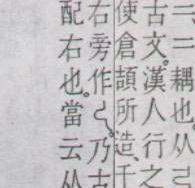 二二耦也从
古文。漢人行之
使倉頡所造、千
右旁作。乃古
配右也。當云从